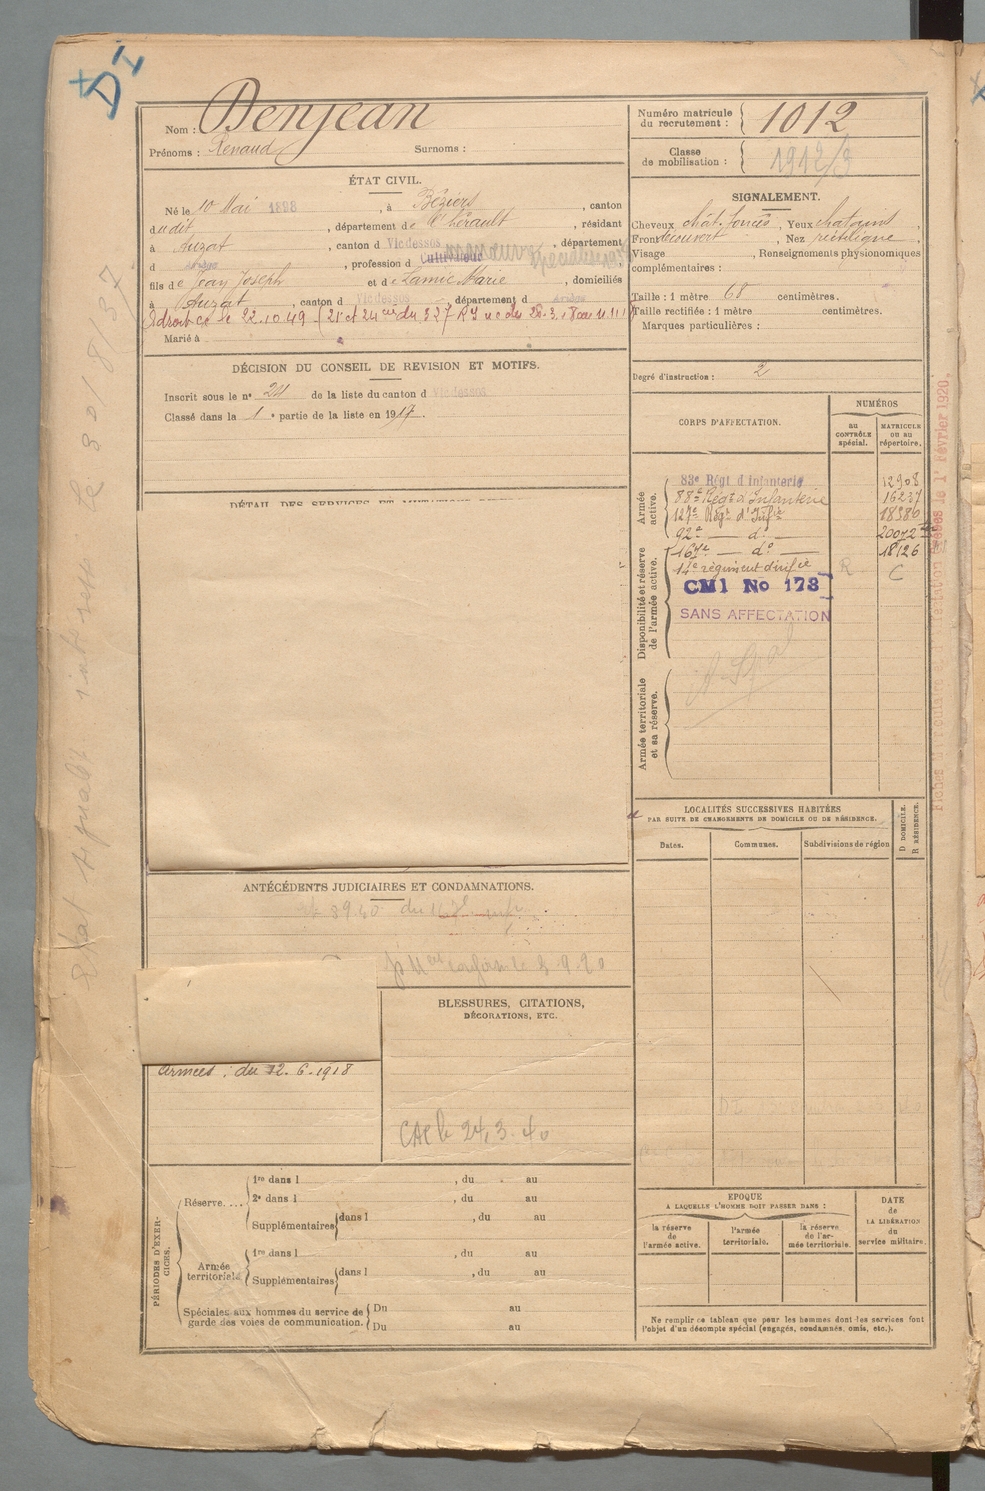 Nom : Denjean
Prénoms : Renaud Surnoms :
ÉTAT CIVIL.
Né le 10 Mai 1898, à Béziers, canton
dudit, département de l'Hérault, résidant
à Auzat, canton d Vicdessos, département
d Ariège, profession d Cultivateur
fils de Jean Joseph et de Lamic Marie, domiciliés
à Auzat, canton d Vicdessos, département d Ariège
le 22.10.49
Marié à
DÉCISION DU CONSEIL DE REVISION ET MOTIFS.
Inscrit sous le n° 24 de la liste du canton d Vicdessos
Classé dans la 1e partie de la liste en 1917.
DÉTAIL DES SERVICES ET
ANTÉCÉDENTS JUDICIAIRES ET CONDAMNATIONS.
armées : du 12.6.1918
BLESSURES, CITATIONS,
DÉCORATIONS, ETC.
24.3.40
PÉRIODES D'EXERCICES.
Réserve....
1re dans l , du au
2e dans l , du au
Supplémentaires dans l , du au
Armée territoriale
1re dans l , du au
Supplémentaires dans l , du au
Spéciales aux hommes du service de
garde des voies de communication.
Du au
Du au
Numéro matricule
du recrutement : 1012
Classe
de mobilisation : 1912/3
SIGNALEMENT.
Cheveux chât. foncés, Yeux chatains
Front découvert, Nez rectiligne
Visage , Renseignements physionomiques
complémentaires :
Taille : 1 mètre 68 centimètres.
Taille rectifiée : 1 mètre centimètres.
Marques particulières :
Degré d'instruction : 2
CORPS D'AFFECTATION.
NUMÉROS
au
CONTRÔLE
spécial.
MATRICULE
OU AU
répertoire.
Armée
active.
83e Régt d'Infanterie 12908
88e Régt d'Infanterie 16237
127e Régt d'Infie 18386
92e — do — 20072
Disponibilité et réserve
de l'armée active.
167e — do — 18126
14e régiment d'infie R C
CMI No 173
SANS AFFECTATION
Armée territoriale
et sa réserve.
LOCALITÉS SUCCESSIVES HABITÉES
PAR SUITE DE CHANGEMENTS DE DOMICILE OU DE RÉSIDENCE.
Dates.
Communes.
Subdivisions de région
D DOMICILE.
R RÉSIDENCE.
EPOQUE
A LAQUELLE L'HOMME DOIT PASSER DANS :
la réserve
de
l'armée active.
l'armée
territoriale.
la réserve
de l'ar-
mée territoriale.
DATE
de
LA LIBÉRATION
du
service militaire.
Ne remplir ce tableau que pour les hommes dont les services font
l'objet d'un décompte spécial (engagés, condamnés, omis, etc.).